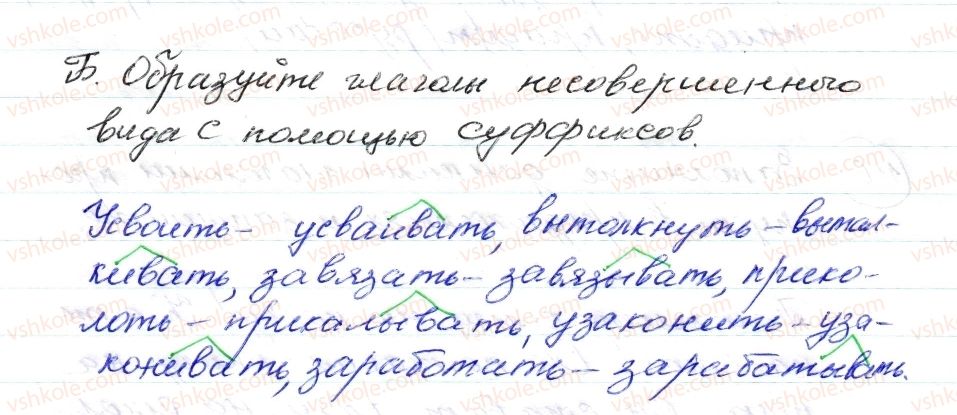 Б. Образуйте глаголы несовершенного
вида с помощью суффиксов.
Усвоить – усваивать, вытолкнуть – вытал-
кивать, завязать – завязывать, прико-
лоть – прикалывать, узаконить – уза-
конивать, заработать – зарабатывать.